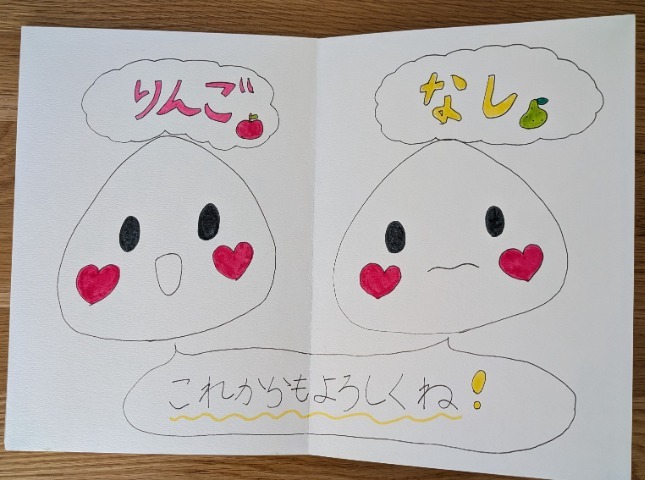 りんご
なし
これからもよろしくね!